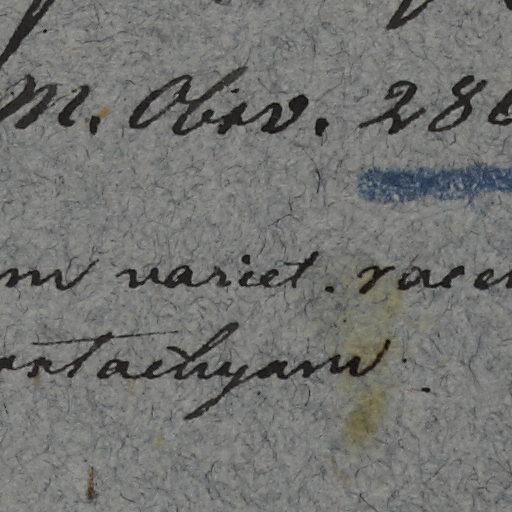 M. Obsv. 28
m variet. race
stachyam.